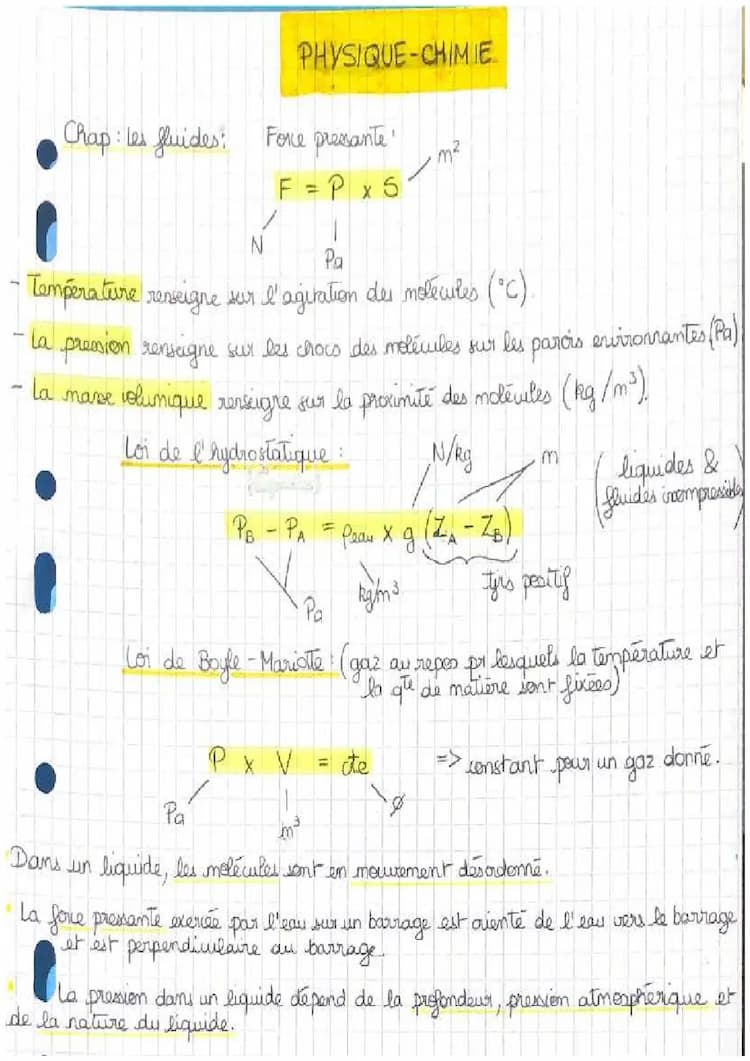 PHYSIQUE-CHIMIE
Chap : les fluides : Force pressante :
m²
F = P x S
N
Pa
- Température renseigne sur l'agitation des molécules (°C)
- La pression renseigne sur les chocs des molécules sur les parois environnantes (Pa)
- La masse volumique renseigne sur la proximité des molécules (kg/m³).
Loi de l'hydrostatique :
N/kg
m
(liquides &
fluides incompressibles
PB - PA = ρeau x g (ZA - ZB)
Pa
kg/m³
tjrs positif
Loi de Boyle-Mariotte : (gaz au repos pr lesquels la température et
la qté de matière sont fixées)
P x V = cte => constant pour un gaz donné.
Pa
m³
ø
Dans un liquide, les molécules sont en mouvement désordonné.
La force pressante exercée par l'eau sur un barrage est orienté de l'eau vers le barrage
et est perpendiculaire au barrage.
La pression dans un liquide dépend de la profondeur, pression atmosphérique et
de la nature du liquide.